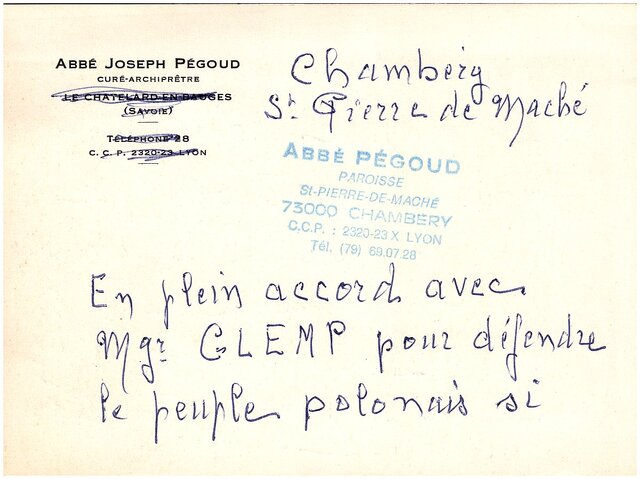 ABBÉ JOSEPH PÉGOUD
CURÉ-ARCHIPRÊTRE
LE CHATELARD-EN-BAUGES
(SAVOIE)
TÉLÉPHONE 28
C. C. P. 2320-23 LYON
Chambéry
St Pierre de Maché
ABBÉ PÉGOUD
PAROISSE
St-PIERRE-DE-MACHÉ
73000 CHAMBERY
C.C.P. : 2320-23 X LYON
Tél. (79) 69.07.28
En plein accord avec
Mgr GLEMP pour défendre
le peuple polonais si